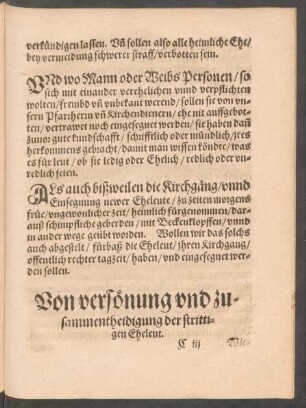 verkündigen lassen. Vñ sollen also alle heimliche Ehe/
bey vermeidung schwerer straff/ verbotten sein.
VNd wo Mann oder Weibs Personen/ so
sich mit einander verehelichen vnnd verpflichten
wolten/ frembd vñ vnbekant werend/ sollen sie von vn-
sern Pfarherrn vñ Kirchendienern/ ehe nit auffgebot-
ten/ vertrawet noch eingesegnet werden/ sie haben dañ
zuuor gute kundschafft/ schrifftlich oder mündlich/ jres
herkommens gebracht/ damit man wissen köndte/ was
es für leut/ ob sie ledig oder Ehelich/ redlich oder vn-
redlich seien.
ALs auch bißweilen die Kirchgäng/ vnnd
Einsegnung newer Eheleute/ zu zeiten morgens
früe/ vngewonlicher zeit/ heimlich fürgenommen/ dar-
auß schimpfliche geberden/ mit Beckenklopffen/ vnnd
in ander wege geübt worden. Wollen wir das solchs
auch abgestelt/ fürbaß die Eheleut/ jhren Kirchgang/
offentlich rechter tagzeit/ haben/ vnd eingesegnet wer-
den sollen.
Von versönung vnd zu-
sammentheidigung der stritti-
gen Eheleut.
C iij